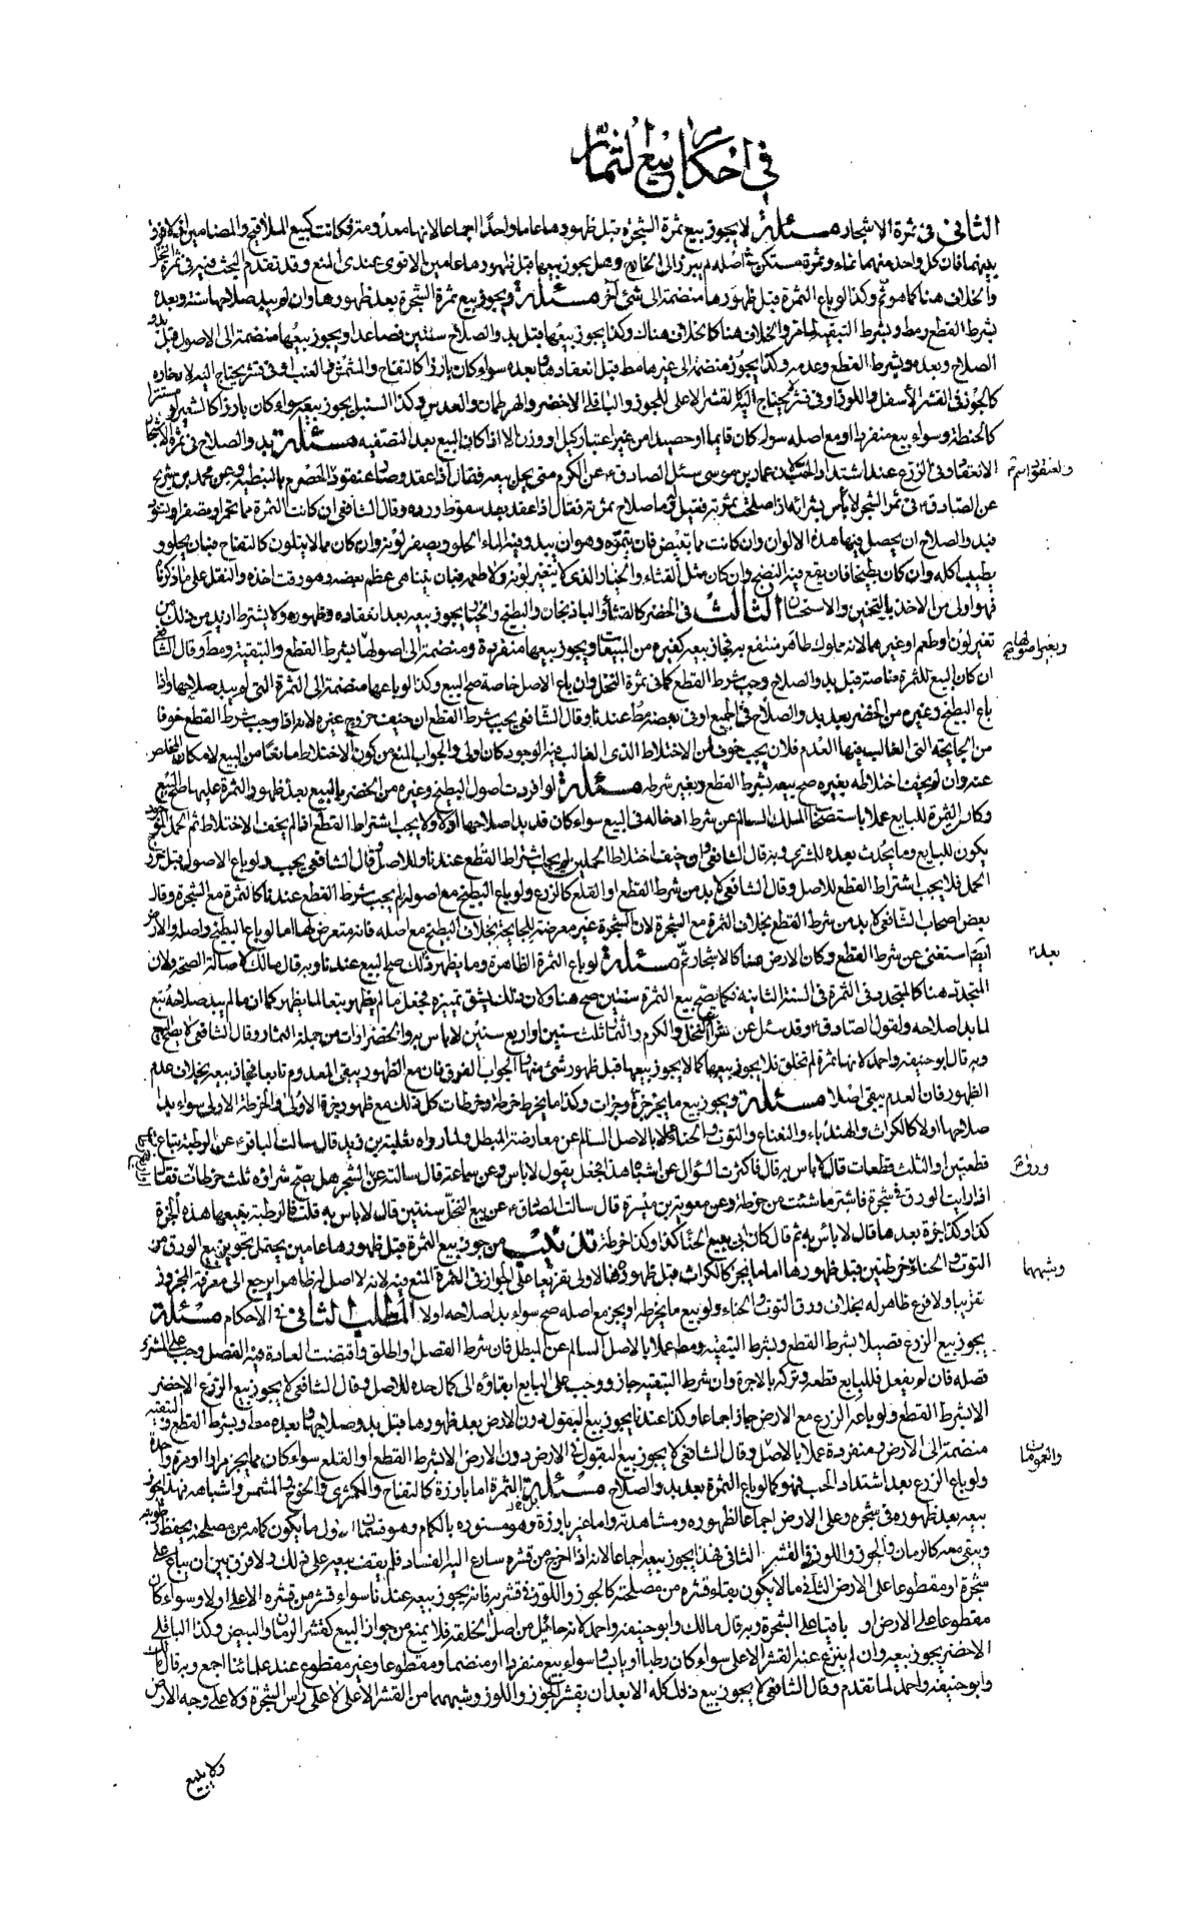 في احكام بيع الثمار
الثاني في ثمرة الاشجار مسئلة لا يجوز بيع ثمرة الشجرة قبل ظهورها عاما واحدا اجماعا لانها معدومة فكانت كبيع الملاقيح والمضامين اذ لا فرق
بينهما فان كل واحد منهما نماء وثمرة مستكن في اصله لم يبرز الى الخارج وهل يجوز بيعها قبل ظهورها عامين الاقوى عندي المنع وقد تقدم البحث فيه في ثمرة النخل
والخلاف هنا كما هو ثم وكذا لو باع الثمرة قبل ظهورها منضمة الى شئ آخر مسئلة ويجوز بيع ثمرة الشجرة بعد ظهورها وان لم يبد صلاحها سنة وبعده
بشرط القطع ومط وبشرط التبقية لما مر والخلاف هنا كالخلاف هناك وكذا يجوز بيعها قبل بدو الصلاح سنتين فصاعدا ويجوز بيعها منضمة الى الاصول قبل بدو
الصلاح وبعده وبشرط القطع وعدمه وكذا يجوز منضمة الى غيرها مط قبل انعقادها وبعده سواء كان بارزا كالتفاح والمشمش والعنب او في قشر يحتاج اليه لادخاره
كالجوز في القشر الأسفل واللوز او في قشر لا يحتاج اليه كالقشر الاعلى للجوز والباقلى الاخضر والهرطمان والعدس وكذا السنبل يجوز بيعه سواء كان بارزا كالشعير او مستترا
كالحنطة وسواء بيع منفردا او مع اصله سواء كان قايما او حصيدا من غير اعتبار كيل او وزن الا اذا كان البيع بعد التصفية مسئلة بدو الصلاح في ثمرة الاشجار
الانعقاد وفي الزرع عند اشتداد الحب لان عمار بن موسى سئل الصادق ع عن الكرم متى يحل بيعه فقال اذا عقد وصار عنقودا الحصرم بالنبطية وعن محمد بن شريح
والعنقود اسم
عن الصادق ع في ثمر الشجر لا بأس بشرائه اذا صلحت ثمرته فقيل له وما صلاح ثمرته فقال اذا عقد بعد سقوط ورده وقال الشافعي ان كانت الثمرة مما تحمر او تصفر او تسود
فبدو الصلاح ان يحصل فيها هذه الالوان وان كانت مما تبيض فان يتموه وهو ان يبدو فيه الماء الحلو ويصفر لونه وان كان مما لا يتلون كالتفاح فبان يحلو و
يطيب اكله وان كان بطيخا فان يقع فيه النضج وان كان مثل القثاء والخيار الذي لا يتغير لونه ولا طعمه فبان يتناهى عظم بعضه وهو وقت اخذه والنقل على ما ذكرناه
فهو اولى من الاخذ بالتخمين والاستحسان الثالث في الخضر كالقثاء والباذنجان والبطيخ والخيار يجوز بيعه بعد انعقاده وظهوره ولا يشترط ازيد من ذلك من
تغير لون او طعم او غيرهما لانه مملوك طاهر منتفع به فجاز بيعه كغيره من المبيعات ويجوز بيعها منفردة ومنضمة الى اصولها بشرط القطع والتبقية ومط وقال الشافعي
وبغير اصولها
ان كان البيع للثمرة خاصة قبل بدو الصلاح وجب شرط القطع كما في ثمرة النخل وان باع الاصل خاصة صح البيع وكذا لو باعها منضمة الى الثمرة التي لم يبد صلاحها واذا
باع البطيخ وغيره من الخضر بعد بدو الصلاح في الجميع او في بعضه مط عندنا وقال الشافعي يجب شرط القطع ان خيف خروج غيره لانه اذا وجب شرط القطع خوفا
من الجايحة التي الغالب فيها العدم فلان يجب خوفا من الاختلاط الذي الغالب فيه الوجود كان اولى والجواب المنع من كون الاختلاط مانعا من البيع لامكان التخلص
عنه وان لم يخف اختلاطه بغيره صح بيعه بشرط القطع وبغير شرطه مسئلة لو افردت اصول البطيخ وغيره من الخضر بالبيع بعد ظهور الثمرة عليها صح البيع
وكانت الثمرة للبايع عملا باستصحاب الملك السالم عن شرط ادخاله في البيع سواء كان قد بدا صلاحها اولا ولا يجب اشتراط القطع اذا لم يخف الاختلاط ثم الحمل الموجود
يكون للبايع وما يحدث بعده للمشتري وبه قال الشافعي وان خيف اختلاط الحملين لم يجب اشتراط القطع عندنا وللاصل وقال الشافعي يجب ولو باع الاصول قبل خروج
الحمل فلا يجب اشتراط القطع للاصل وقال الشافعي لا بد من شرط القطع او القلع كالزرع ولو باع البطيخ مع اصوله لم يجب شرط القطع عندنا كالثمرة مع الشجرة وقال
بعض اصحاب الشافعي لا بد من شرط القطع بخلاف الثمرة مع الشجرة لان الشجرة غير معرضة للجايحة بخلاف البطيخ مع اصله فانه متعرض لها اما لو باع البطيخ واصله والارض
ايضا استغنى عن شرط القطع وكان الارض هنا كالاشجار ثم مسئلة لو باع الثمرة الظاهرة وما يظهر ذلك صح البيع عندنا وبه قال مالك لاصالة الصحة ولان
بعد
المتجدد هنا كالمتجدد في الثمرة في السنة الثانية فكما يصح بيع الثمرة سنتين صح هنا ولان ذلك يشق تمييزه فجعل ما لم يظهر تبعا لما يظهر كما ان ما لم يبد صلاحه تبع
لما بدا صلاحه ولقول الصادق ع وقد سئل عن شراء النخل والكرم والثمار ثلث سنين او اربع سنين لا باس به والخضراوات من جملة الثمار وقال الشافعي لا يصح البيع
وبه قال ابو حنيفة واحمد لانها ثمرة لم تخلق فلا يجوز بيعها كما لا يجوز بيعها قبل ظهور شئ منها الجواب الفرق فان مع الظهور يبقى المعدوم تابعا فجاز بيعه بخلاف عدم
الظهور فان العدم يبقى اصلا مسئلة ويجوز بيع ما يجز جزة وجزات وكذا ما يخرط خرطة وخرطات كل ذلك مع ظهور الجزة الاولى والخرطة الاولى سواء بدا
صلاحها اولا كالكراث والهندباء والنعناع والتوت والحناء عملا بالاصل السالم عن معارضة المبطل ولما رواه ثعلبة بن زيد قال سالت الباقر ع عن الرطبة تباع
قطعتين او الثلث قطعات قال لا باس به قال فاكثرت السؤال عن اشباه هذا فجعل يقول لا باس وعن سماعة قال سالته عن الشجر هل يصح شراؤه ثلث خرطات فقال
اذا رايت الورق في شجرة فاشتر ما شئت من خرطة وعن معوية بن ميسرة قال سالت الصادق ع عن بيع النخل سنتين قال لا باس به قلت فالرطبة يبيعها هذه الجزة
كذا وكذا جزة بعدها قال لا بأس به ثم قال كان ابي يبيع الحناء كذا وكذا خرطة تذنيب من جوز بيع الثمرة قبل ظهورها عامين يحتمل تجويز بيع الورق من
التوت والحناء خرطتين قبل ظهورها اما ما يجز كالكراث قبل ظهورها الاولى تفريعا على الجواز في الثمرة المنع فيه لانه لا اصل له ظاهرا يرجع الى معرفة المجزوز
وشبههما
تقريبا ولا فرع ظاهر له بخلاف ورق التوت والحناء ولو بيع ما يخرط او يجز مع اصله صح سواء بدا صلاحه اولا المطلب الثاني في الاحكام مسئلة
يجوز بيع الزرع قصيلا بشرط القطع وبشرط التبقية ومط عملا بالاصل السالم عن المبطل فان شرط الفصل او اطلق واقتضت العادة فيه الفصل وجب على المشتري
فصله فان لم يفعل فللبايع قطعه وتركه بالاجرة وان شرط التبقية جاز ووجب على البايع ابقاؤه الى كمال حده للاصل وقال الشافعي لا يجوز بيع الزرع الاخضر
الا بشرط القطع ولو باعه الزرع مع الارض جاز اجماعا وكذا عندنا يجوز بيع البقول دون الارض بعد ظهورها قبل بدو صلاحها وبعده مط وبشرط القطع والتبقية
منضمة الى الارض ومنفردة عملا بالاصل وقال الشافعي لا يجوز بيع البقول في الارض دون الارض الا بشرط القطع او القلع سواء كان مما يجز مرارا او مرة واحدة
والعمومات
ولو باع الزرع بعد اشتداد الحب فهو كما لو باع الثمرة بعد بدو الصلاح مسئلة الثمرة اما بارزة كالتفاح والكمثرى والخوخ والمشمش واشباهه فهذا يجوز
بيعه بعد ظهوره في شجره وعلى الارض اجماعا لظهوره ومشاهدته واما غير بارزة وهو مستورة بالكمام وهو قسمان الاول ما يكون كمامه من مصلحته يحفظ رطوبته
ويبقى معه كالرمان والجوز واللوز في القشر الثاني فهذا يجوز بيعه اجماعا لانه اذا اخرج من قشره سارع اليه الفساد فلم يقف بيعه على ذلك ولا فرق بين ان يباع على
شجرة او مقطوعا على الارض الثاني ما لا يكون بقاء قشره من مصلحته كالجوز واللوز في قشريه فانه يجوز بيعه عندنا سواء قشر من قشره الاعلى اولا وسواء كان
مقطوعا على الارض او باقيا على الشجرة وبه قال مالك وابو حنيفة واحمد لانه حائل من اصل الخلقة فلا يمنع من جواز البيع كقشر الرمان والبيض وكذا الباقلى
الاخضر يجوز بيعه وان لم ينزع عنه القشر الاعلى سواء كان رطبا او يابسا وسواء بيع منفردا او منضما ومقطوعا وغير مقطوع عند علمائنا اجمع وبه قال مالك
وابو حنيفة واحمد لما تقدم وقال الشافعي لا يجوز بيع ذلك كله الا بعد ان يقشر الجوز واللوز وشبههما من القشر الأعلى لا على راس الشجرة ولا على وجه الارض
ولا يبيع